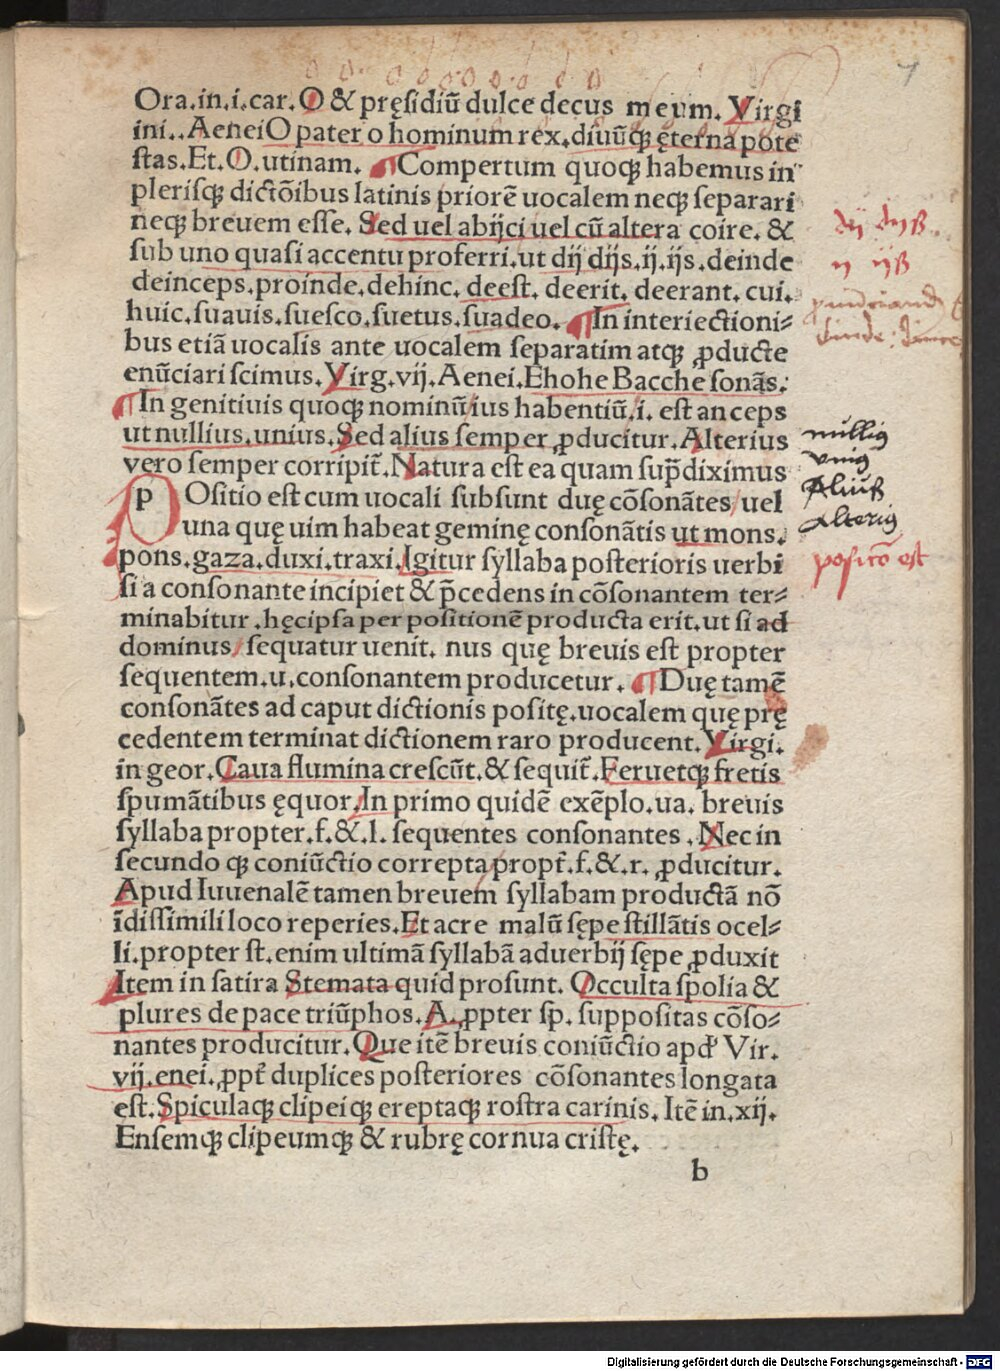 7
Ora.in.i.car.O & pręſidiū dulce decus meum. Virgi
ini..AeneiO pater o hominum rex.diuūqꝫ ęterna pote
ſtas.Et.O.utinam. ¶Compertum quoqꝫ habemus in
pleriſqꝫ dictōibus latinis priorē uocalem neqꝫ ſeparari
neqꝫ breuem eſſe. Sed uel abijci uel cū altera coire. &
ſub uno quaſi accentu proferri.ut dij dijs.ij.ijs.deinde
deinceps.proinde.dehinc.deeſt.deerit.deerant.cui.
huic.ſuauis.ſueſco.ſuetus.ſuadeo. ¶In interiectioni⸗
bus etiā uocalis ante uocalem ſeparatim atqꝫ ꝓducte
enūciari ſcimus.Virg.vij.Aenei.Ehohe Bacche ſonās.
¶In genitiuis quoqꝫ nominū ius habentiū.i.eſt anceps
ut nullius.unius.Sed alius ſemper ꝓducitur.Alterius
vero ſemper corripit̄.Natura eſt ea quam ſup̄diximus
pOſitio eſt cum uocali ſubſunt duę cōſonātes/uel
una quę uim habeat geminę conſonātis ut mons.
pons.gaza.duxi.traxi.Igitur ſyllaba poſterioris uerbi
ſi a conſonante incipiet & p̄cedens in cōſonantem ter⸗
minabitur.hęcipſa per poſitionē producta erit.ut ſi ad
dominus/ſequatur uenit. nus quę breuis eſt propter
ſequentem.u.conſonantem producetur. ¶Duę tamē
conſonātes ad caput dictionis poſitę.uocalem quę prę
cedentem terminat dictionem raro producent.Virgi.
in geor.Caua flumina creſcūt.& ſequit̄.Feruetqꝫ fretis
ſpumātibus ęquor.In primo quidē exēplo.ua. breuis
ſyllaba propter.f.&.l. ſequentes conſonantes.Nec in
ſecundo qꝫ coniūctio correpta propt̄.f.&.r. ꝓducitur.
Apud Iuuenalē tamen breuem ſyllabam productā nō
īdiſſimili loco reperies.Et acre malū ſępe ſtillātis ocel⸗
li.propter ſt.enim ultimā ſyllabā aduerbij ſępe ꝓduxit
Item in ſatira Stemata quid proſunt. Occulta ſpolia &
plures de pace triūphos.A.ꝓpter ſp. ſuppoſitas cōſo⸗
nantes producitur.Que itē breuis coniūctio apd' Vir.
vij.enei.ꝓpt̄ duplices poſteriores cōſonantes longata
eſt.Spiculaqꝫ clipeiqꝫ ereptaqꝫ roſtra carinis. Itē in.xij.
Enſemqꝫ clipeumqꝫ & rubrę cornua criſtę.
b
dij dijß
ij ijß
nullius
vnius
Aliuß
Alterius
positio est
Digitalisierung gefördert durch die Deutsche Forschungsgemeinschaft - DFG